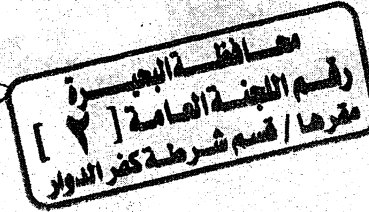 محافظة البحيرة
رقم اللجنة العامة [ ٢ ]
مقرها / قسم شرطة كفر الدوار